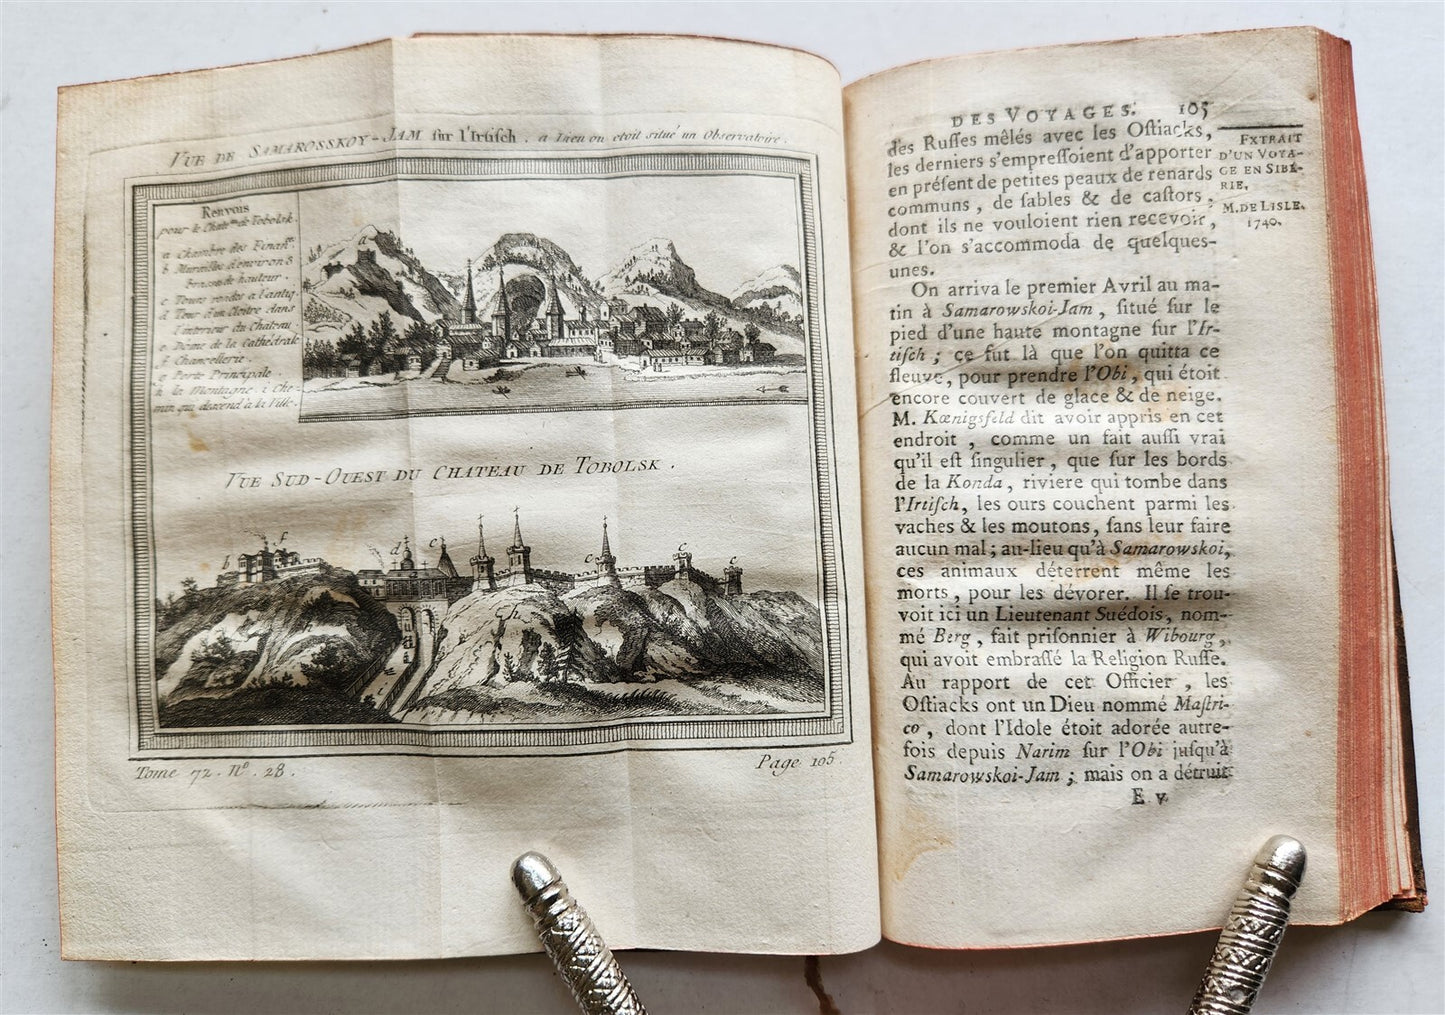 VUE DE SAMAROSSKOY-JAM sur l'Irtisch. a Lieu ou etoit situé un Observatoire.
Renvois
pour le Chatau de Tobolsk.
a Chambre des Finances
b Muraille d'environ 8
Brasses de hauteur.
c Tours rondes a l'antiq.
d Tour d'un Cloitre dans
l'interieur du Chateau.
e Dôme de la Cathédrale
f Chancellerie.
g Porte Principale.
h la Montagne. i Che-
min qui descend à la Ville.
VUE SUD-OUEST DU CHATEAU DE TOBOLSK.
b f d e c c c
h
i
Tome 72. N.º 28.
Page 105.
DES VOYAGES. 105
des Ruſſes mêlés avec les Oſtiacks,
les derniers s'empreſſoient d'apporter
en préſent de petites peaux de renards
communs, de ſables & de caſtors,
dont ils ne vouloient rien recevoir,
& l'on s'accommoda de quelques-
unes.
On arriva le premier Avril au ma-
tin à Samarowskoi-Jam, ſitué ſur le
pied d'une haute montagne ſur l'Ir-
tiſch; ce fut là que l'on quitta ce
fleuve, pour prendre l'Obi, qui étoit
encore couvert de glace & de neige.
M. Kœnigsfeld dit avoir appris en cet
endroit, comme un fait auſſi vrai
qu'il eſt ſingulier, que ſur les bords
de la Konda, riviere qui tombe dans
l'Irtiſch, les ours couchent parmi les
vaches & les moutons, ſans leur faire
aucun mal; au-lieu qu'à Samarowskoi,
ces animaux déterrent même les
morts, pour les dévorer. Il ſe trou-
voit ici un Lieutenant Suédois, nom-
mé Berg, fait priſonnier à Wibourg,
qui avoit embraſſé la Religion Ruſſe.
Au rapport de cet Officier, les
Oſtiacks ont un Dieu nommé Maſtri-
co, dont l'Idole étoit adorée autre-
fois depuis Narim ſur l'Obi juſqu'à
Samarowskoi-Jam; mais on a détruit
E v
EXTRAIT
D'UN VOYA-
GE EN SIBE-
RIE.
M. DE LISLE.
1740.